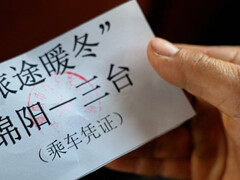 旅途暖冬”
绵阳—三台
（乘车凭证）